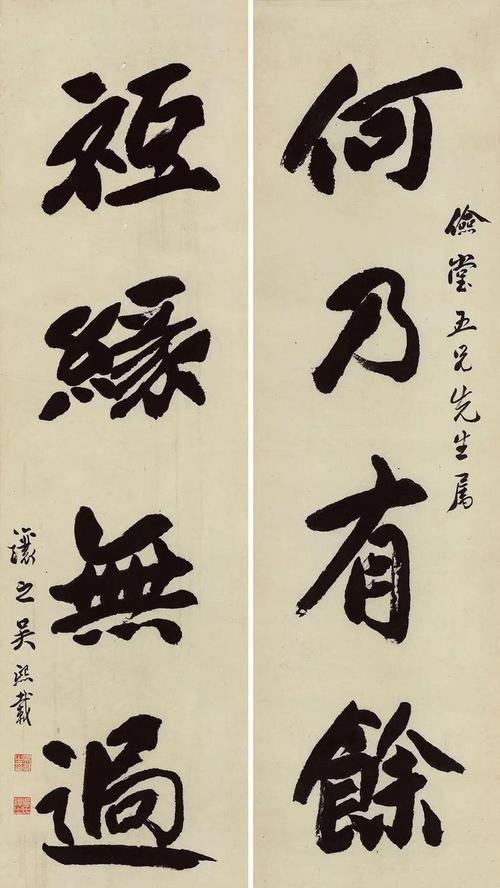 儉堂五兄先生属
何乃有餘
祗緣無過
讓之吳熙載